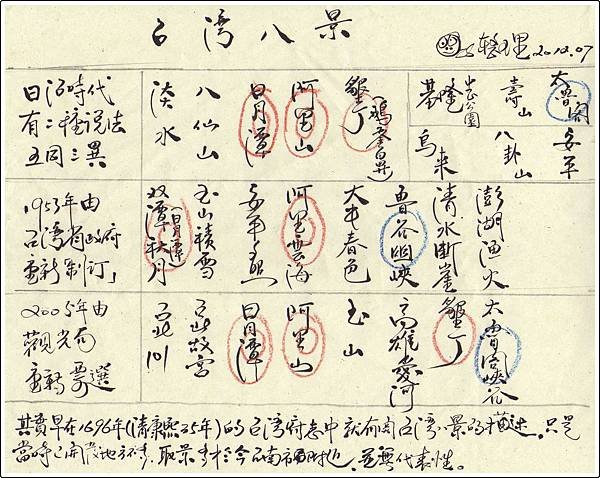 台湾八景
整理
日治時代
有二種説法
五同三異
淡水
八仙山
日月潭
阿里山
墾丁
(鵝鑾鼻)
基隆
中正公園
烏来
壽山
八卦山
太魯閣
安平
1953年由
台湾省政府
重新制订」
双潭秋月
(日月潭)
玉山積雪
安平夕照
阿里雲海
大屯春色
魯谷幽峽
清水断崖
澎湖漁火
2005年由
觀光局
重新票選
台北101
台北故宮
日月潭
阿里山
玉山
高雄愛河
墾丁
太魯閣峽谷
其實早在1696年(清康熙35年)的台湾府志中就有関台湾八景的描述,只是
當時已開發地方不多,取景多於今台南市附近,並無代表性。